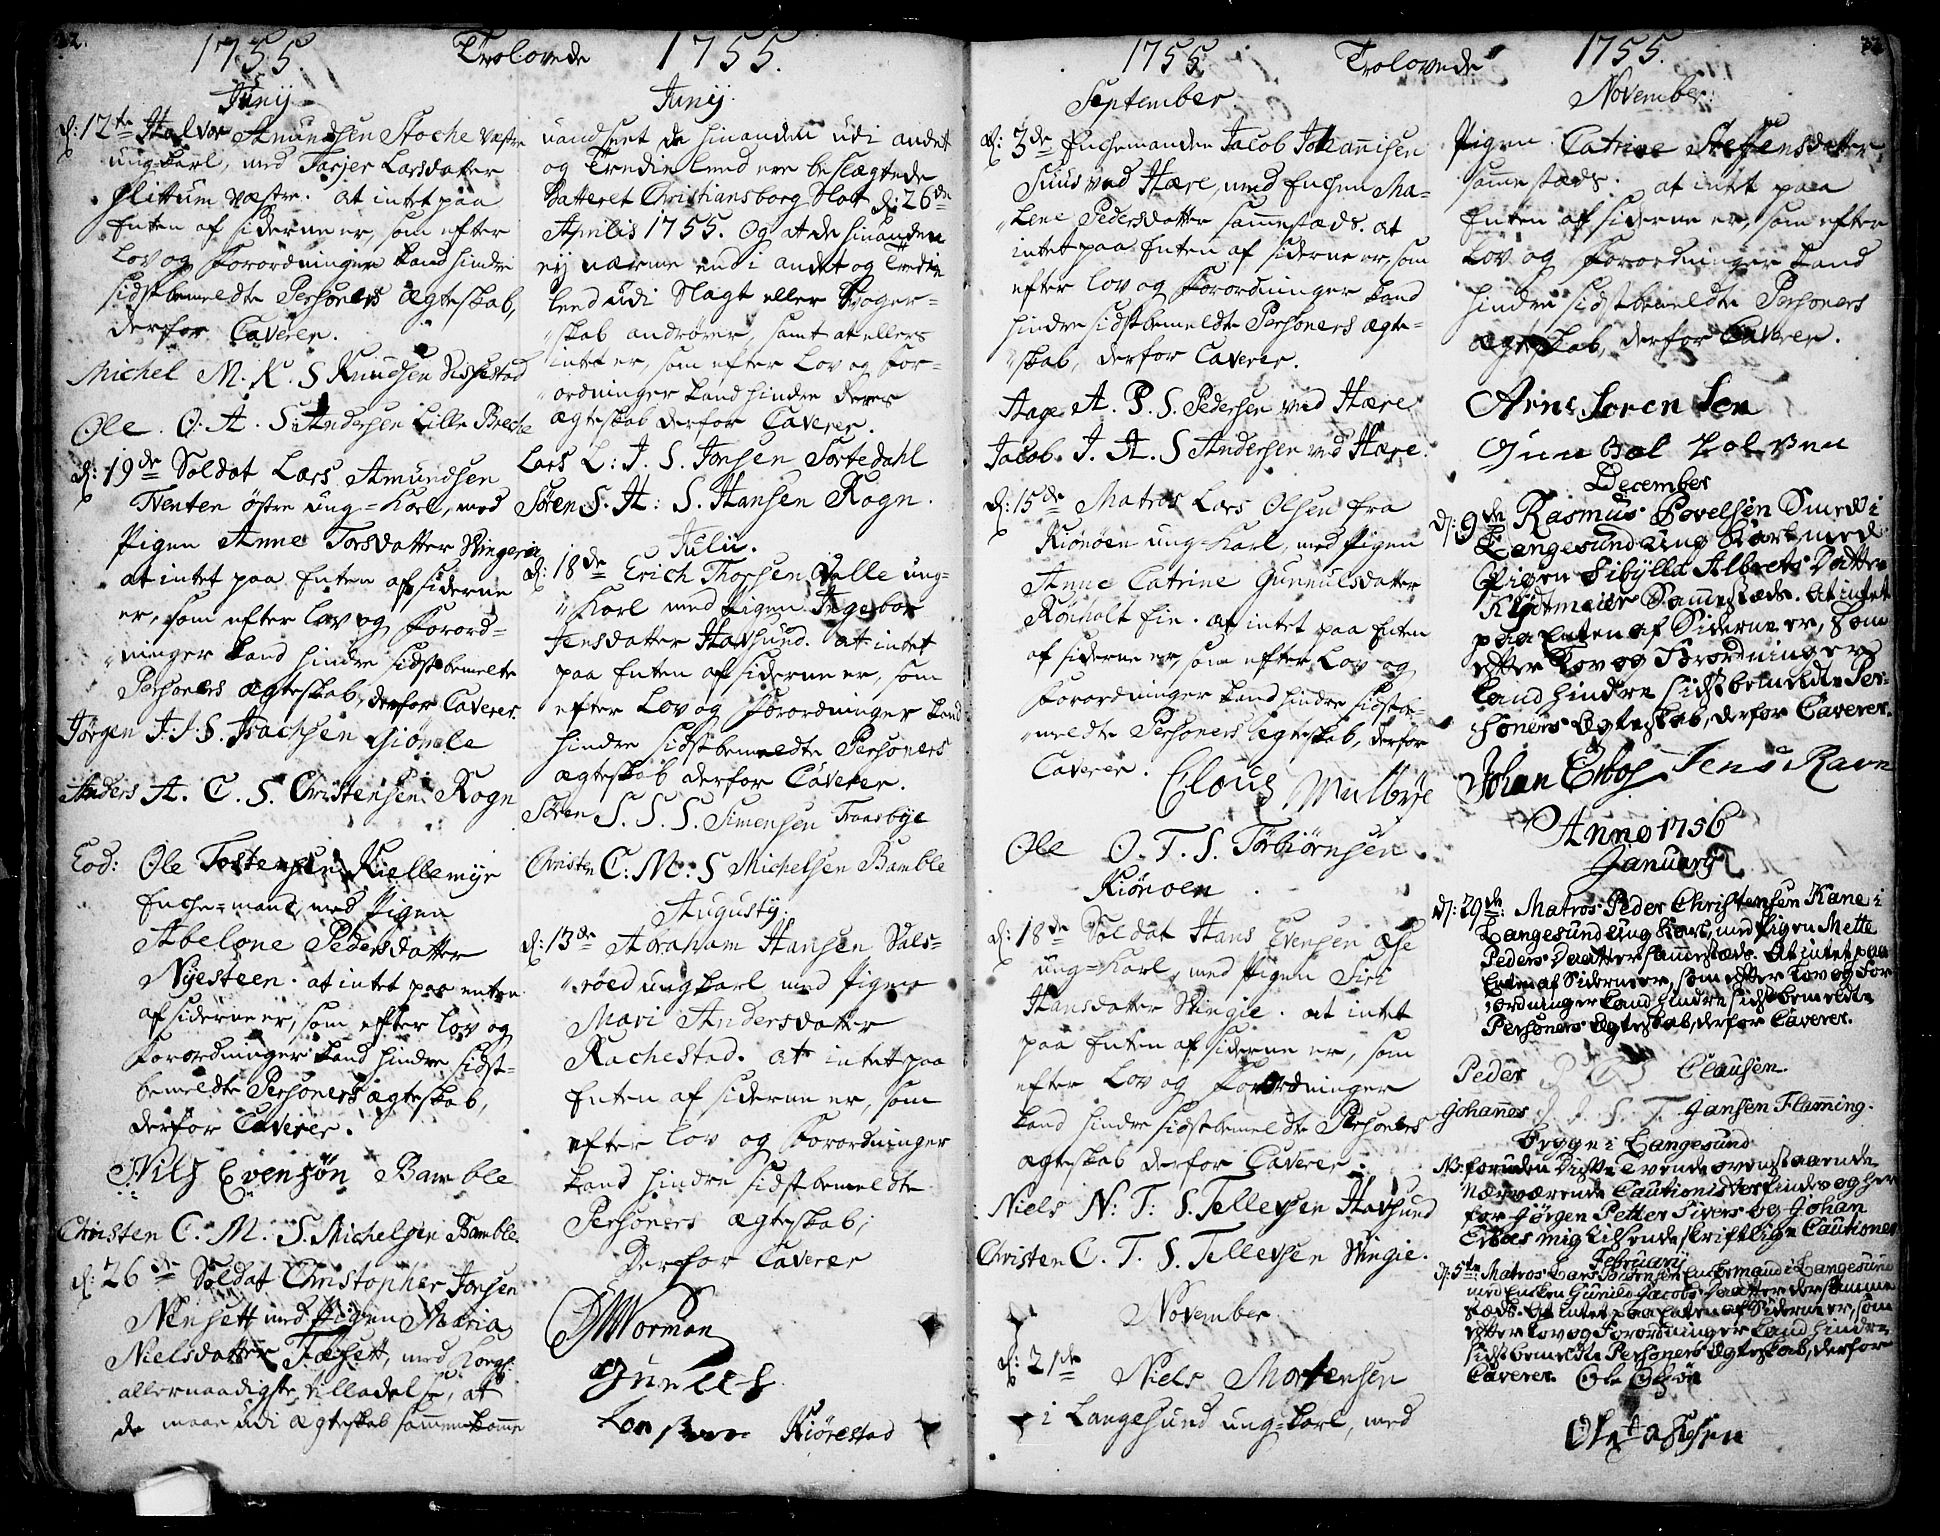 22.
1755 Trolovede 1755.
Junij
d: 12te Halvor Amundsen Stoche væstre
ung-karl, med Tarjer Larsdatter
Flittum væstre. at intet paa
Enten af siderne er, som efter
Lov og Forordninger kand hindre
sidstbemeldte Personers ægteskab,
derfor Caverer.
Michel M. K. S Knudsen Dishestad
Ole. O. A. S. Andersen Lille Breche
d: 19de Soldat Lars Amundsen
Tventen østre ung-Karl, med
Pigen Anne Torsdatter Stingerie
at intet paa Enten af siderne
er, som efter Lov og Forord-
ninger kand hindre sidstbemelte
Personers ægteskab, derfor Caverer.
Jørgen J. J. S. Isachsen Giømle
Anders A. C. S. Christensen Rogn
Eod: Ole Tostensen Kiellemyr
Enche-mand, med Pigen
Abelone Pedersdatter
Nyesteen. at intet paa enten
af siderne er, som efter Lov og
Forordninger kand hindre sidst-
bemeldte Personers ægteskab,
derfor Caverer.
Nils Evensøn Bamble
Christen C. M. S. Michelsen Bamble.
d: 26de Soldat Christopher Jonsen
Nensett med Pigen Maria
Nielsdatter Fæsett, med Kongl:
allernaadigste tilladelse, at
de maae udi ægteskab sammenkomme
Junij.
uandseet de hinanden udi andet
og Tredie leed ere beslægtede
Datteret Christiansborg Slot d: 26de
Aprilis 1755. Og at de hinanden
ej nærme end i andet og Tredie
leed udi Slagt eller Svoger-
skab andrører, samt at ellers
intet er, som efter Lov og For-
ordninger kand hindre deres
ægteskab derfor Caverer.
Lars L: J. S. Jonsen Tortedahl
Søren S. H: S. Hansen Rogn.
Julii.
d: 18de Erich Thorsen Valle ung-
Karl med Pigen Ingebor
Jensdatter Havsund. at intet
paa Enten af siderne er, som
efter Lov og Forordninger kand
hindre sidstbemeldte Personers
ægteskab derfor Caverer.
Søren S. S. S. Simensen Traasbye
Christen C: M: S Michelsen Bamble
Augustij.
d: 13de Abraham Hansen Vals-
røed ung karl med Pigen
Mari Andersdatter
Rachestad. at intet paa
Enten af siderne er, som
efter Lov og Forordninger
kand hindre sidstbemeldte
Personers ægteskab;
Derfor Caverer
Worman
Kiørestad
1755 Trolovede 1755.
September
d: 3de Enchemanden Jacob Johannisen
Suus ved Hære, med Enchen Ma-
lene Pedersdatter sammestæds. at
intet paa Enten af siderne er, som
efter Lov og Forordninger kand
hindre sidstbemeldte Personers ægte-
skab, derfor Caverer.
Aage A. P. S. Pedersen ved Hære
Jacob. J. A. S Andersen ved Hære.
d: 15de Matros Lars Olsen fra
Kiønøen ung-Karl, med Pigen
Anne Catrine Gunnulsdatter
Rønholt Eie. at intet paa Enten
af siderne er, som efter Lov og
Forordninger kand hindre sidstbe-
meldte Personers Ægteskab, derfor
Caverer.
Claus Mulbye
Ole O. T. S. Torbiørnsen
Kiønøen
d: 18de Soldat Hans Evensen Ase
ung-Karl, med Pigen Siri
Hansdatter Stingie. at intet
paa Enten af siderne er, som
efter Lov og Forordninger
kand hindre sidstbemeldte Personers
ægteskab derfor Caverer.
Niels N: T: S. Tellevsen Havsund
Christen C. T. S. Tellevsen Stingie.
November
d: 21de Niels Mortensen
i Langesund ung-karl, med
November.
Pigen Catrine Steffensdatter
sammestæds. at intet paa
Enten af siderne er, som efter
Lov og Forordninger kand
hindre sidstbemeldte Personers
ægteskab, derfor Caverer.
Arne Soren Sen
Gun Bol Hol ven
December
d: 9de Rasmus Povelsen Smed i
Langesund ung Karl med
Pigen Sibylla Albrets Datter
Kydtmeier Sammestæds. At intet
paa Enten af Siderne er, som
efter Lov og Forordninger
kand hindre sidstbemeldte Per-
soners Ægteskab, derfor Caverer.
Johan Erboe Jens Ravn
Anno 1756
January
d: 29de: Matros Peder Christensen Kane i
Langesund ung Karl, med Pigen Mette
Peders Daatter sammestæds. At intet paa
Enten af Siderne er, som efter Lov og For
ordninger kand hindre sidstbemeldte
Personers Ægteskab, derfor Caverer.
Peder P C S Clausen
Johannes J. J. S. F. Jansen Flemming.
Brygge i Langesund
NB: foruden Disse tvende ovenstaaende
Nærværende Cautionister findes og her
for Jørgen Petter Sivers og Johan
Erboes mig tilsendte skriftlige Cautioner
February
d: 5te: Matros Lars Børensen Enckemand i Langesund
med Encken Gunild Jacobs Daatter dersamme
stæds. At Intet paa Enten af Siderne er, som
efter Lov og Forordninger kand hindre
sidstbemeldte Personers Ægteskab, derfor
Caverer. Ole Olsøn